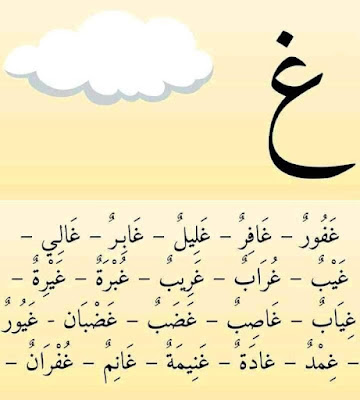 غ
غَفُورٌ – غَافِرٌ – غَلِيلٌ – غَابِرٌ – غَالِي –
غَيْبٌ – غُرَابٌ – غَرِيبٌ – غُبْرَةٌ – غَيْرَةٌ –
غِيَابٌ – غَاصِبٌ – غَضَبٌ – غَضْبَان - غَيُورٌ
– غِمْدٌ – غادَةٌ – غَنِيمَةٌ – غَانِمٌ – غُفْرَانٌ –